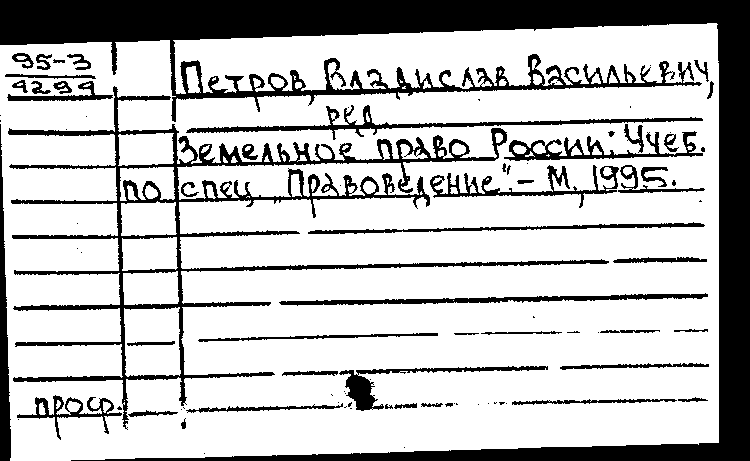 95-3
4294
Петров, Владислав Васильевич,
ред.
Земельное право России: Учеб.
по спец. „Правоведение“. – М., 1995.
проср.